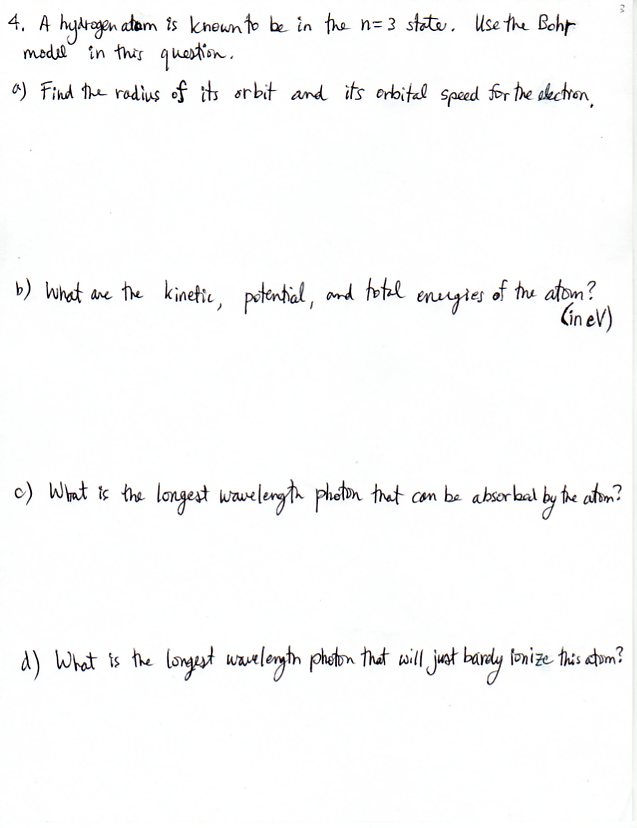 3
4. A hydrogen atom is known to be in the n=3 state. Use the Bohr
model in this question.
a) Find the radius of its orbit and its orbital speed for the electron.
b) What are the kinetic, potential, and total energies of the atom?
(in eV)
c) What is the longest wavelength photon that can be absorbed by the atom?
d) What is the longest wavelength photon that will just barely ionize this atom?